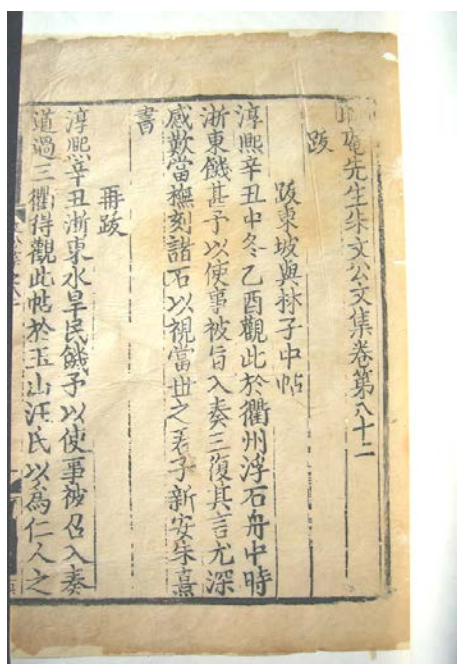 晦庵先生朱文公文集卷第八十二
跋
跋東坡與林子中帖
淳熈辛丑中冬乙酉觀此於衢州浮石舟中時
浙東饑甚予以使事被旨入奏三復其言尤深
感歎當橅刻諸石以視當世之君子新安朱熹
書
再跋
淳熈辛丑浙東水旱民饑予以使事被召入奏
道過三衢得觀此帖於玉山汪氏以爲仁人之